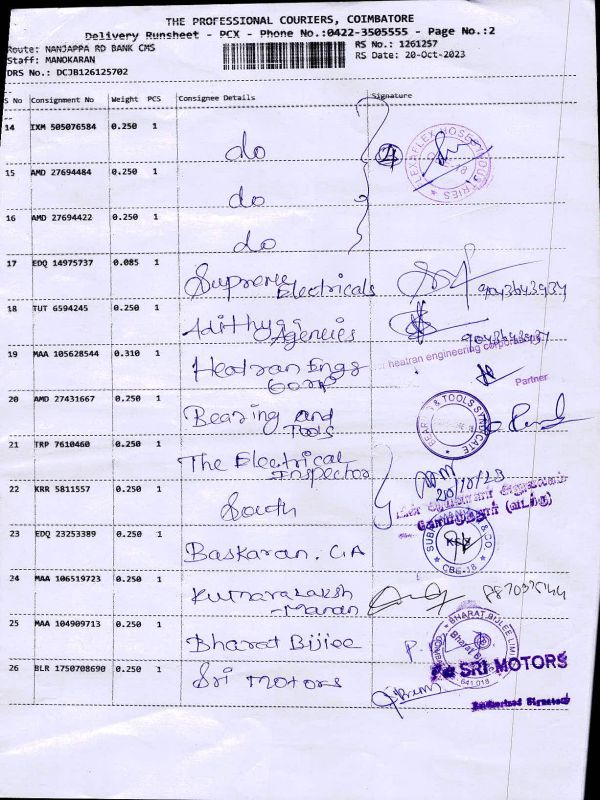 THE PROFESSIONAL COURIERS, COIMBATORE
Delivery Runsheet - PCX - Phone No.:0422-3505555 - Page No.:2
Route: NANJAPPA RD BANK CMS
RS No.: 1261257
Staff: MANOKARAN
RS Date: 20-Oct-2023
DRS No.: DCJB126125702
S No Consignment No Weight PCS Consignee Details Signature
14 IXM 505076584 0.250 1
do
4
15 AMD 27694484 0.250 1
do
16 AMD 27694422 0.250 1
do
17 EDQ 14975737 0.085 1
Supreme Electricals
9043643934
18 TUT 6594245 0.250 1
Adithyaa Agencies
19 MAA 105628544 0.310 1
Heatran Engg Corp
heatran engineering corporation
Partner
20 AMD 27431667 0.250 1
Bearing and Tools
& TOOLS SYNDICATE
21 TRP 7610460 0.250 1
The Electrical Inspector
20/10/23
22 KRR 5811557 0.250 1
South
கோயமுத்தூர் (வடக்கு)
23 EDQ 23253389 0.250 1
Baskaran. C.A
& CO.
CBE-18
24 MAA 106519723 0.250 1
25 MAA 104909713 0.250 1
Bharat Bijlee
BHARAT BIJLEE LIMI
641 018
26 BLR 1750708690 0.250 1
Sri Motors
SRI MOTORS
Authorised Signatory